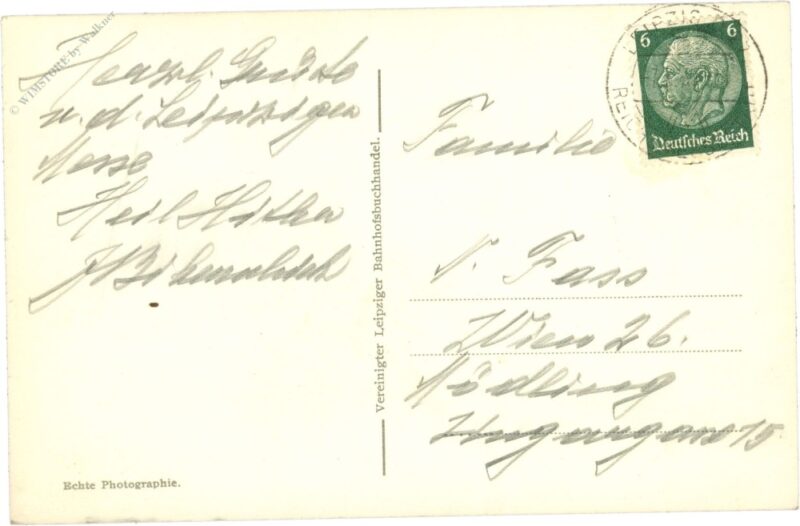 © WIMSTORE by Walkner
Herzl. Grüße
v. d. Leipziger
Messe
Heil Hitler
Familie
Fass
Wien 26.
Mödling
Ungargasse 15
Vereinigter Leipziger Bahnhofsbuchhandel.
Echte Photographie.
LEIPZIG
6 6
Deutsches Reich